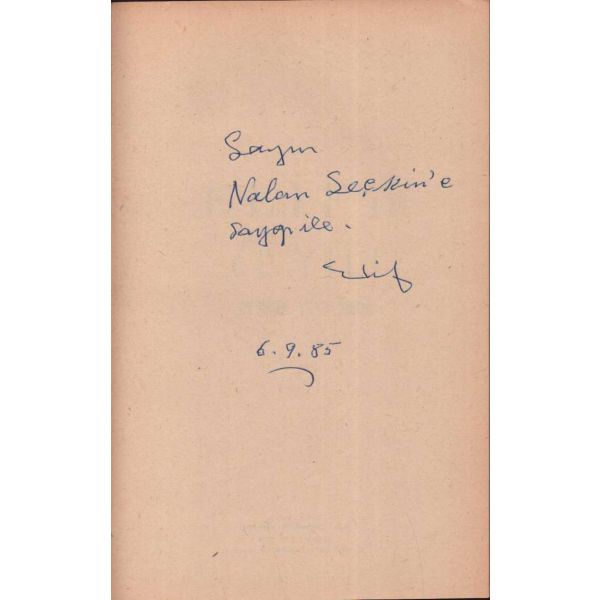 Sayın
Nalan Seçkin'e
saygı ile.
6.9.85